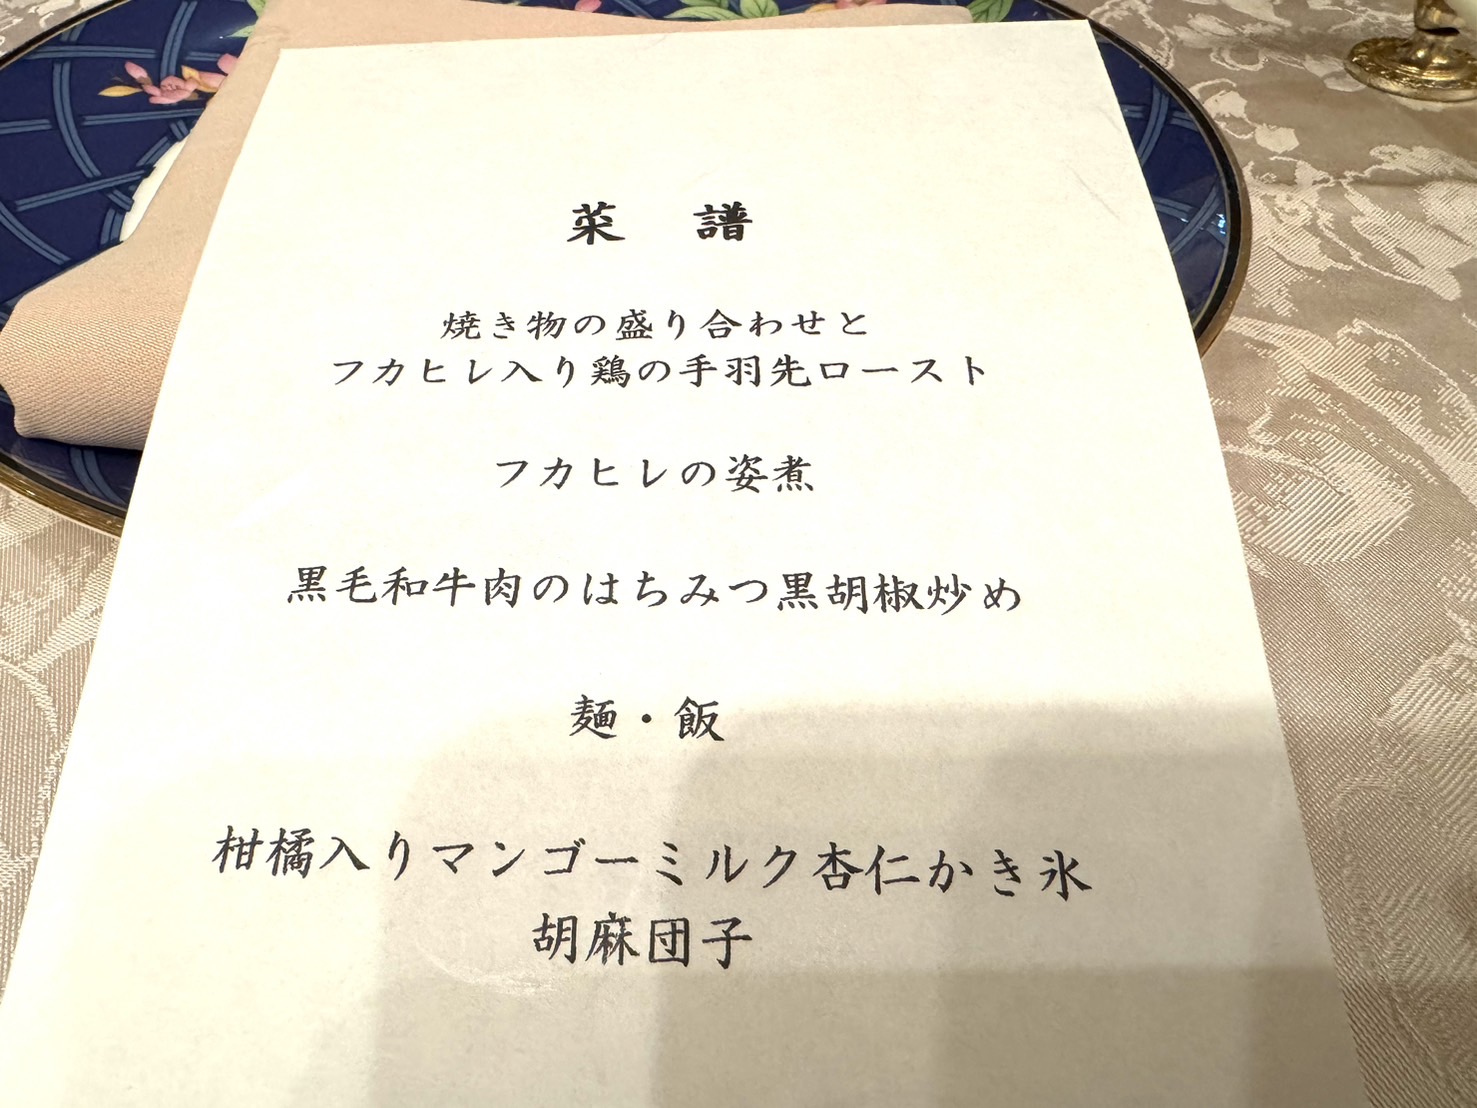 菜 譜
焼き物の盛り合わせと
フカヒレ入り鶏の手羽先ロースト
フカヒレの姿煮
黒毛和牛肉のはちみつ黒胡椒炒め
麺・飯
柑橘入りマンゴーミルク杏仁かき氷
胡麻団子